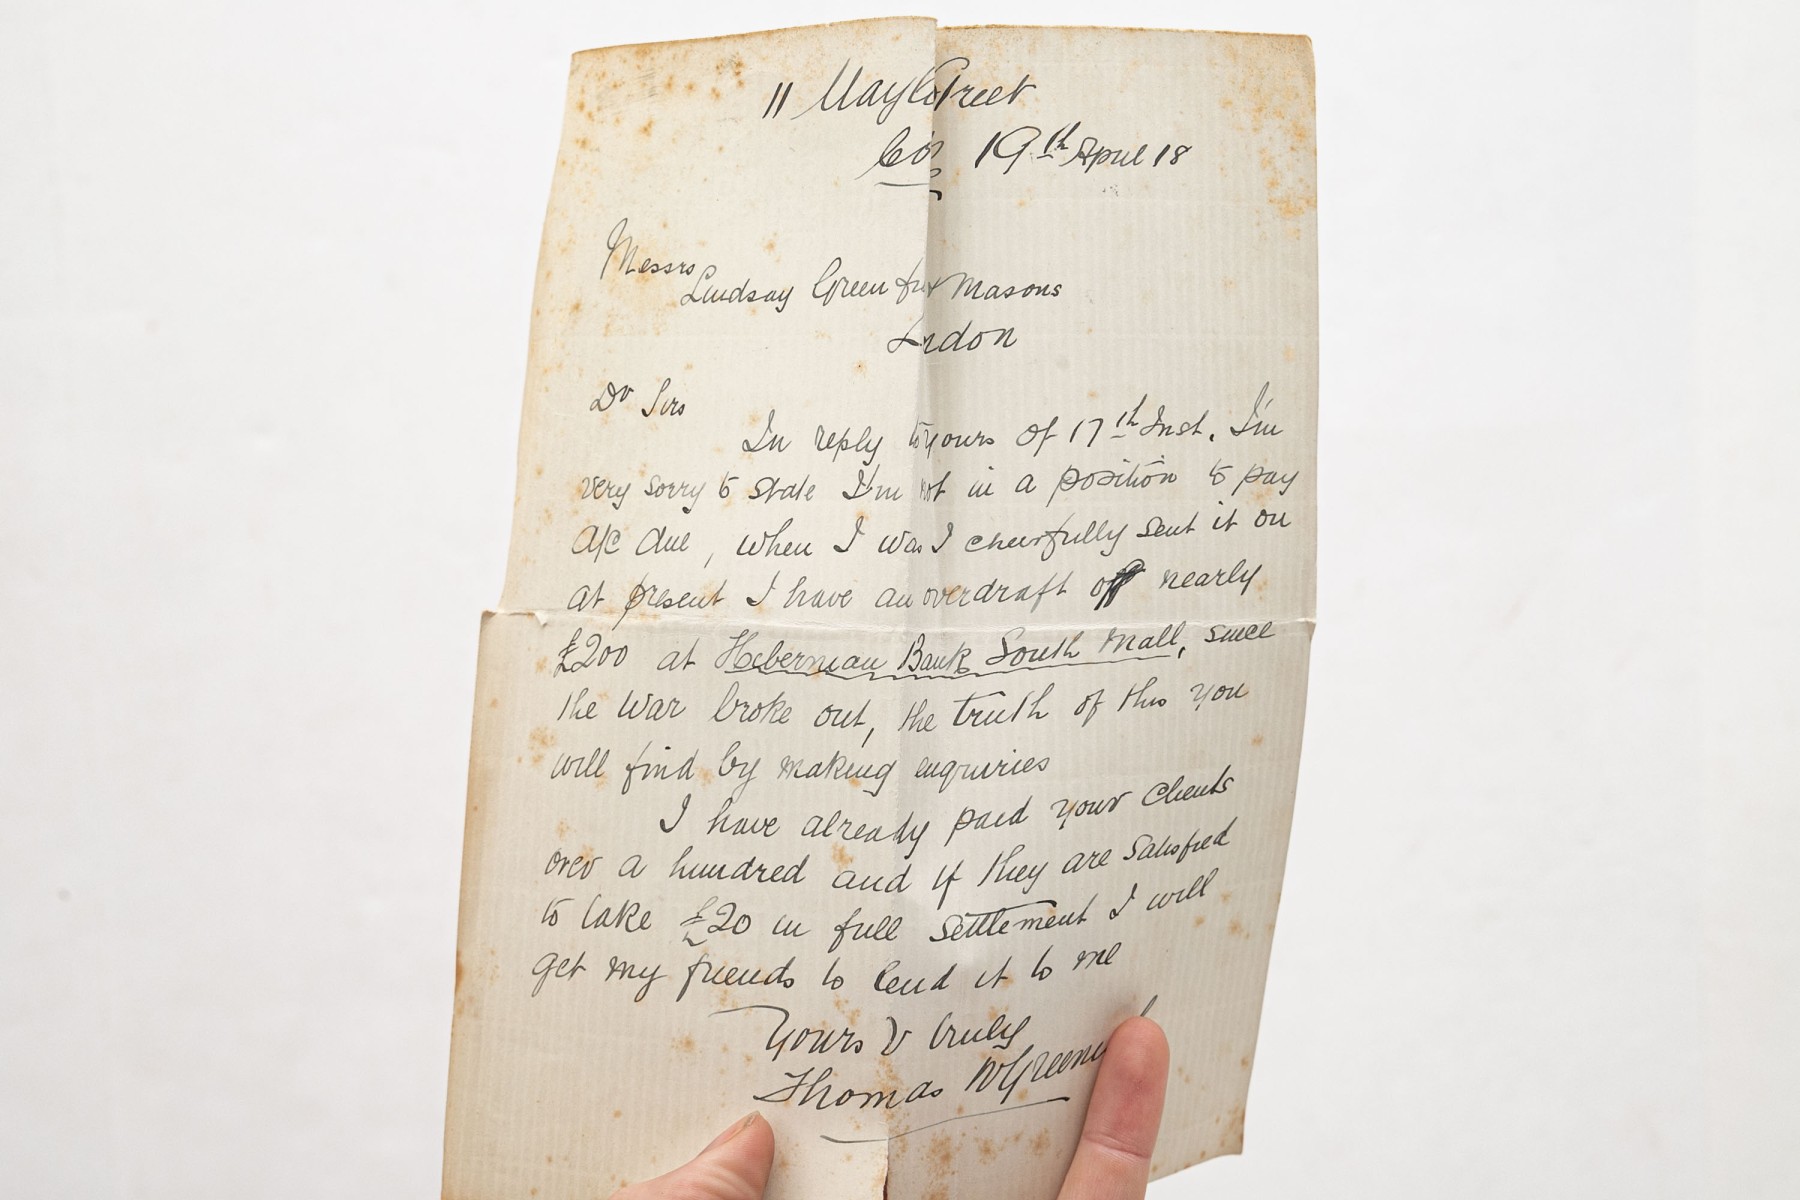 11 May Street
19th April 18
Messrs
Lindsay Green & Masons
London
Dr Sirs
In reply to yours of 17th Inst. I'm
very sorry to state I'm not in a position to pay
a/c due, when I was I cheerfully sent it on
at present I have an overdraft of nearly
£200 at Hibernian Bank South Mall, since
the War broke out, the truth of this you
will find by making enquiries
I have already paid your clients
over a hundred and if they are satisfied
to take £20 in full settlement I will
get my friends to lend it to me
Yours v truly
Thomas